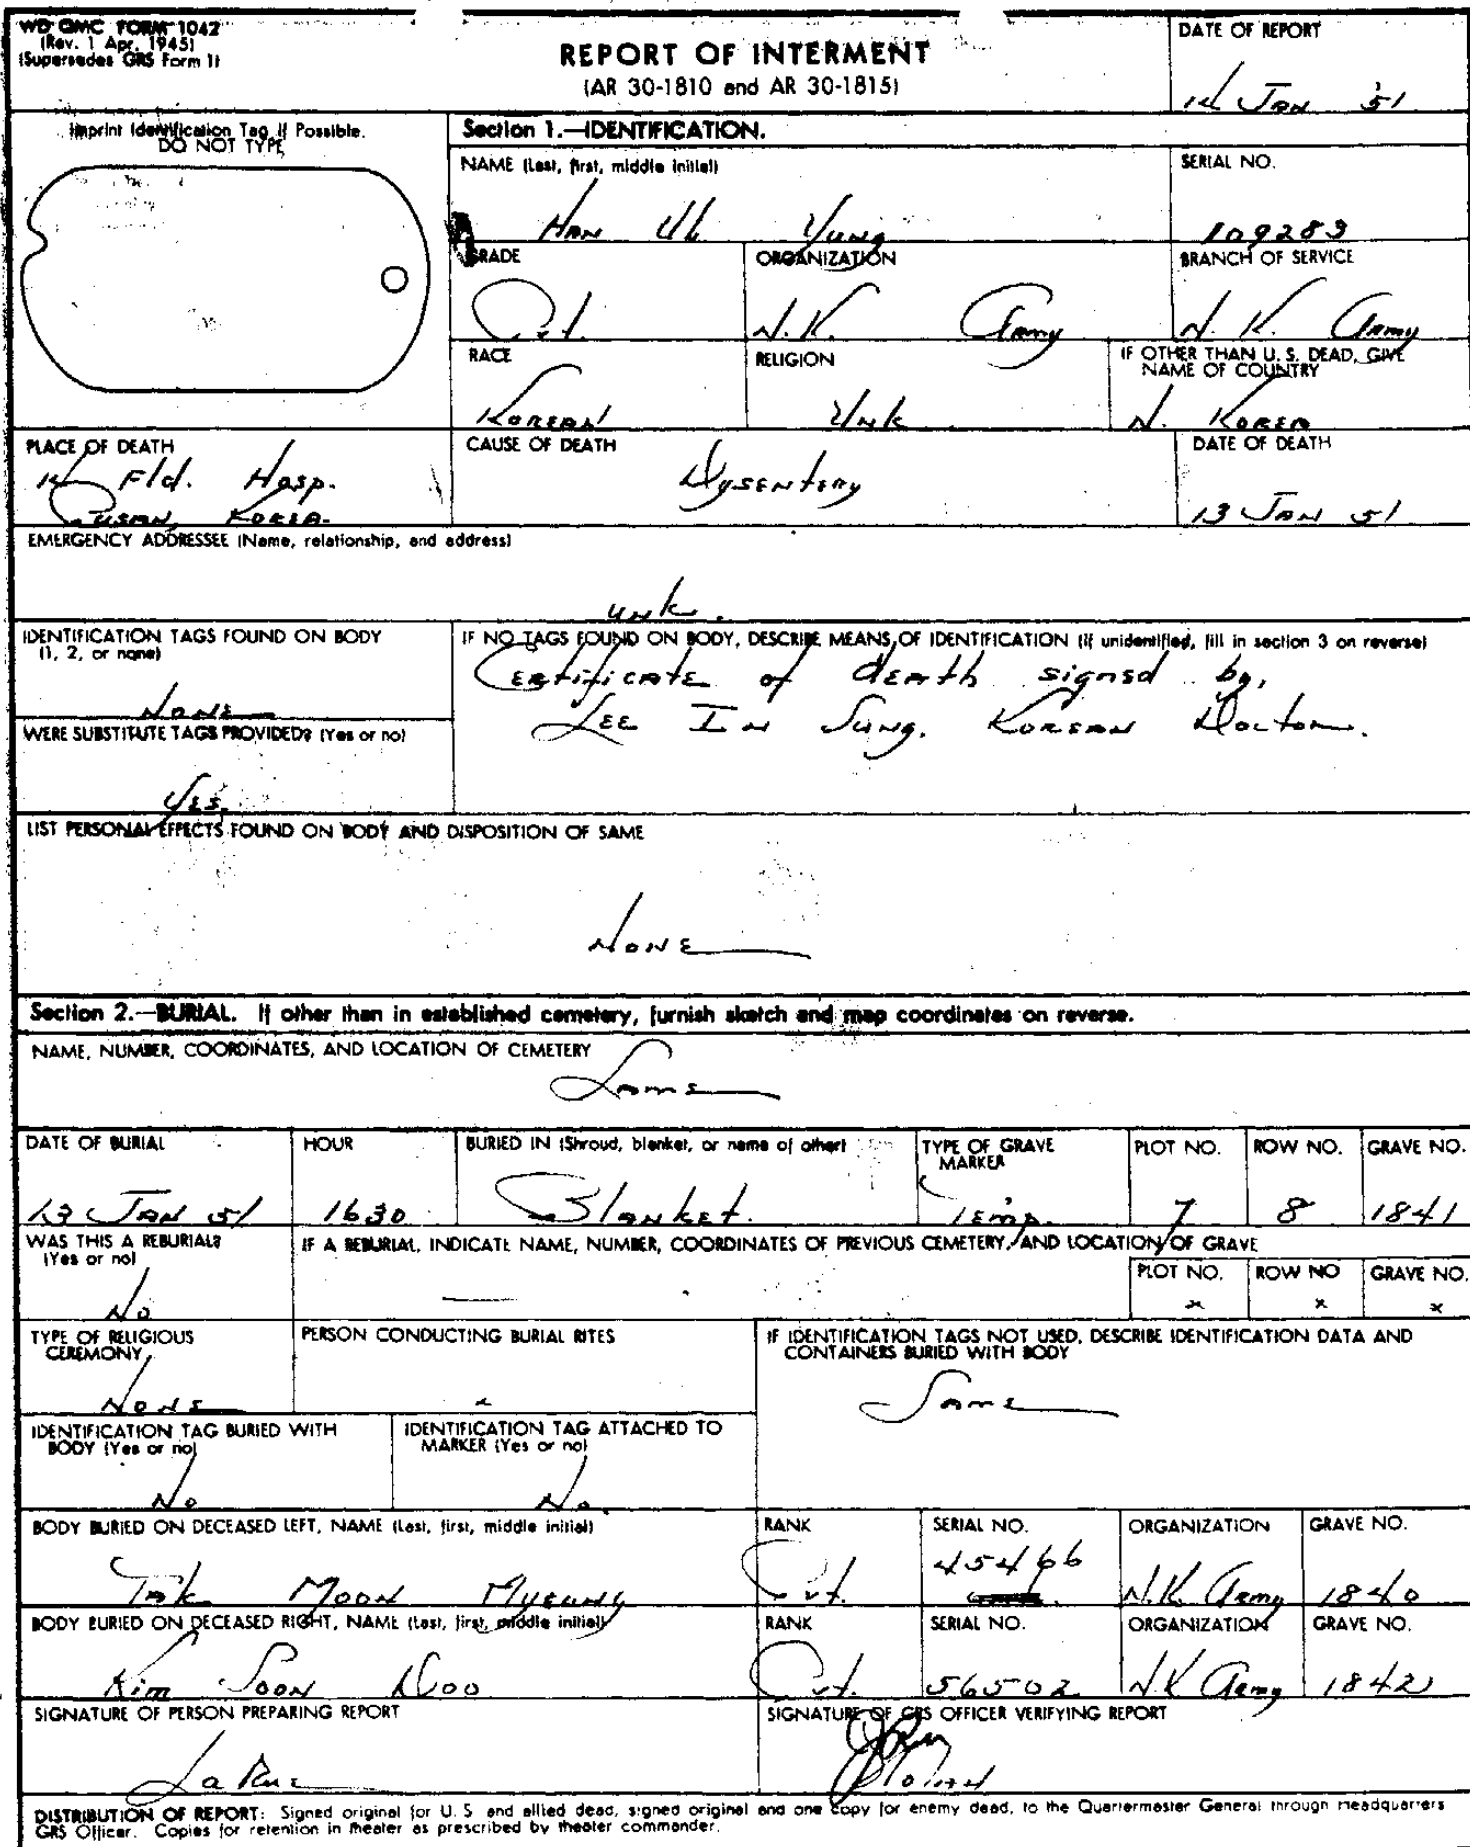 WD QMC FORM 1042
(Rev. 1 Apr. 1945)
(Supersedes GRS Form 1)
REPORT OF INTERMENT
(AR 30-1810 and AR 30-1815)
DATE OF REPORT
14 Jan 51
Imprint Identification Tag If Possible.
DO NOT TYPE
Section 1.—IDENTIFICATION.
NAME (Last, first, middle initial)
Han Uk Yung
SERIAL NO.
109283
GRADE
Pvt.
ORGANIZATION
N.K. Army
BRANCH OF SERVICE
N. K. Army
RACE
Korean
RELIGION
Unk
IF OTHER THAN U. S. DEAD, GIVE
NAME OF COUNTRY
N. Korea
PLACE OF DEATH
14 Fld. Hosp.
Pusan, Korea.
CAUSE OF DEATH
Dysentery
DATE OF DEATH
13 Jan 51
EMERGENCY ADDRESSEE (Name, relationship, and address)
unk.
IDENTIFICATION TAGS FOUND ON BODY
(1, 2, or none)
None
IF NO TAGS FOUND ON BODY, DESCRIBE MEANS OF IDENTIFICATION (If unidentified, fill in section 3 on reverse)
Certificate of death signed by,
Lee In Sung. Korean Doctor.
WERE SUBSTITUTE TAGS PROVIDED? (Yes or no)
Yes.
LIST PERSONAL EFFECTS FOUND ON BODY AND DISPOSITION OF SAME
None
Section 2.—BURIAL. If other than in established cemetery, furnish sketch and map coordinates on reverse.
NAME, NUMBER, COORDINATES, AND LOCATION OF CEMETERY
Same
DATE OF BURIAL
13 Jan 51
HOUR
1630
BURIED IN (Shroud, blanket, or name of other)
Blanket.
TYPE OF GRAVE
MARKER
Temp.
PLOT NO.
7
ROW NO.
8
GRAVE NO.
1841
WAS THIS A REBURIAL?
(Yes or no)
No
IF A REBURIAL, INDICATE NAME, NUMBER, COORDINATES OF PREVIOUS CEMETERY, AND LOCATION OF GRAVE
PLOT NO.
x
ROW NO
x
GRAVE NO.
x
TYPE OF RELIGIOUS
CEREMONY
None
PERSON CONDUCTING BURIAL RITES
IF IDENTIFICATION TAGS NOT USED, DESCRIBE IDENTIFICATION DATA AND
CONTAINERS BURIED WITH BODY
Same
IDENTIFICATION TAG BURIED WITH
BODY (Yes or no)
No
IDENTIFICATION TAG ATTACHED TO
MARKER (Yes or no)
No
BODY BURIED ON DECEASED LEFT, NAME (Last, first, middle initial)
Tak Moon Myeung
RANK
Pvt.
SERIAL NO.
45466
ORGANIZATION
N.K. Army
GRAVE NO.
1840
BODY BURIED ON DECEASED RIGHT, NAME (Last, first, middle initial)
Kim Soon Doo
RANK
Pvt.
SERIAL NO.
56502
ORGANIZATION
N.K Army
GRAVE NO.
1842
SIGNATURE OF PERSON PREPARING REPORT
La Rue
SIGNATURE OF GRS OFFICER VERIFYING REPORT
DISTRIBUTION OF REPORT: Signed original for U. S and allied dead, signed original and one copy for enemy dead, to the Quartermaster General through Headquarters
GRS Officer. Copies for retention in theater as prescribed by theater commander.